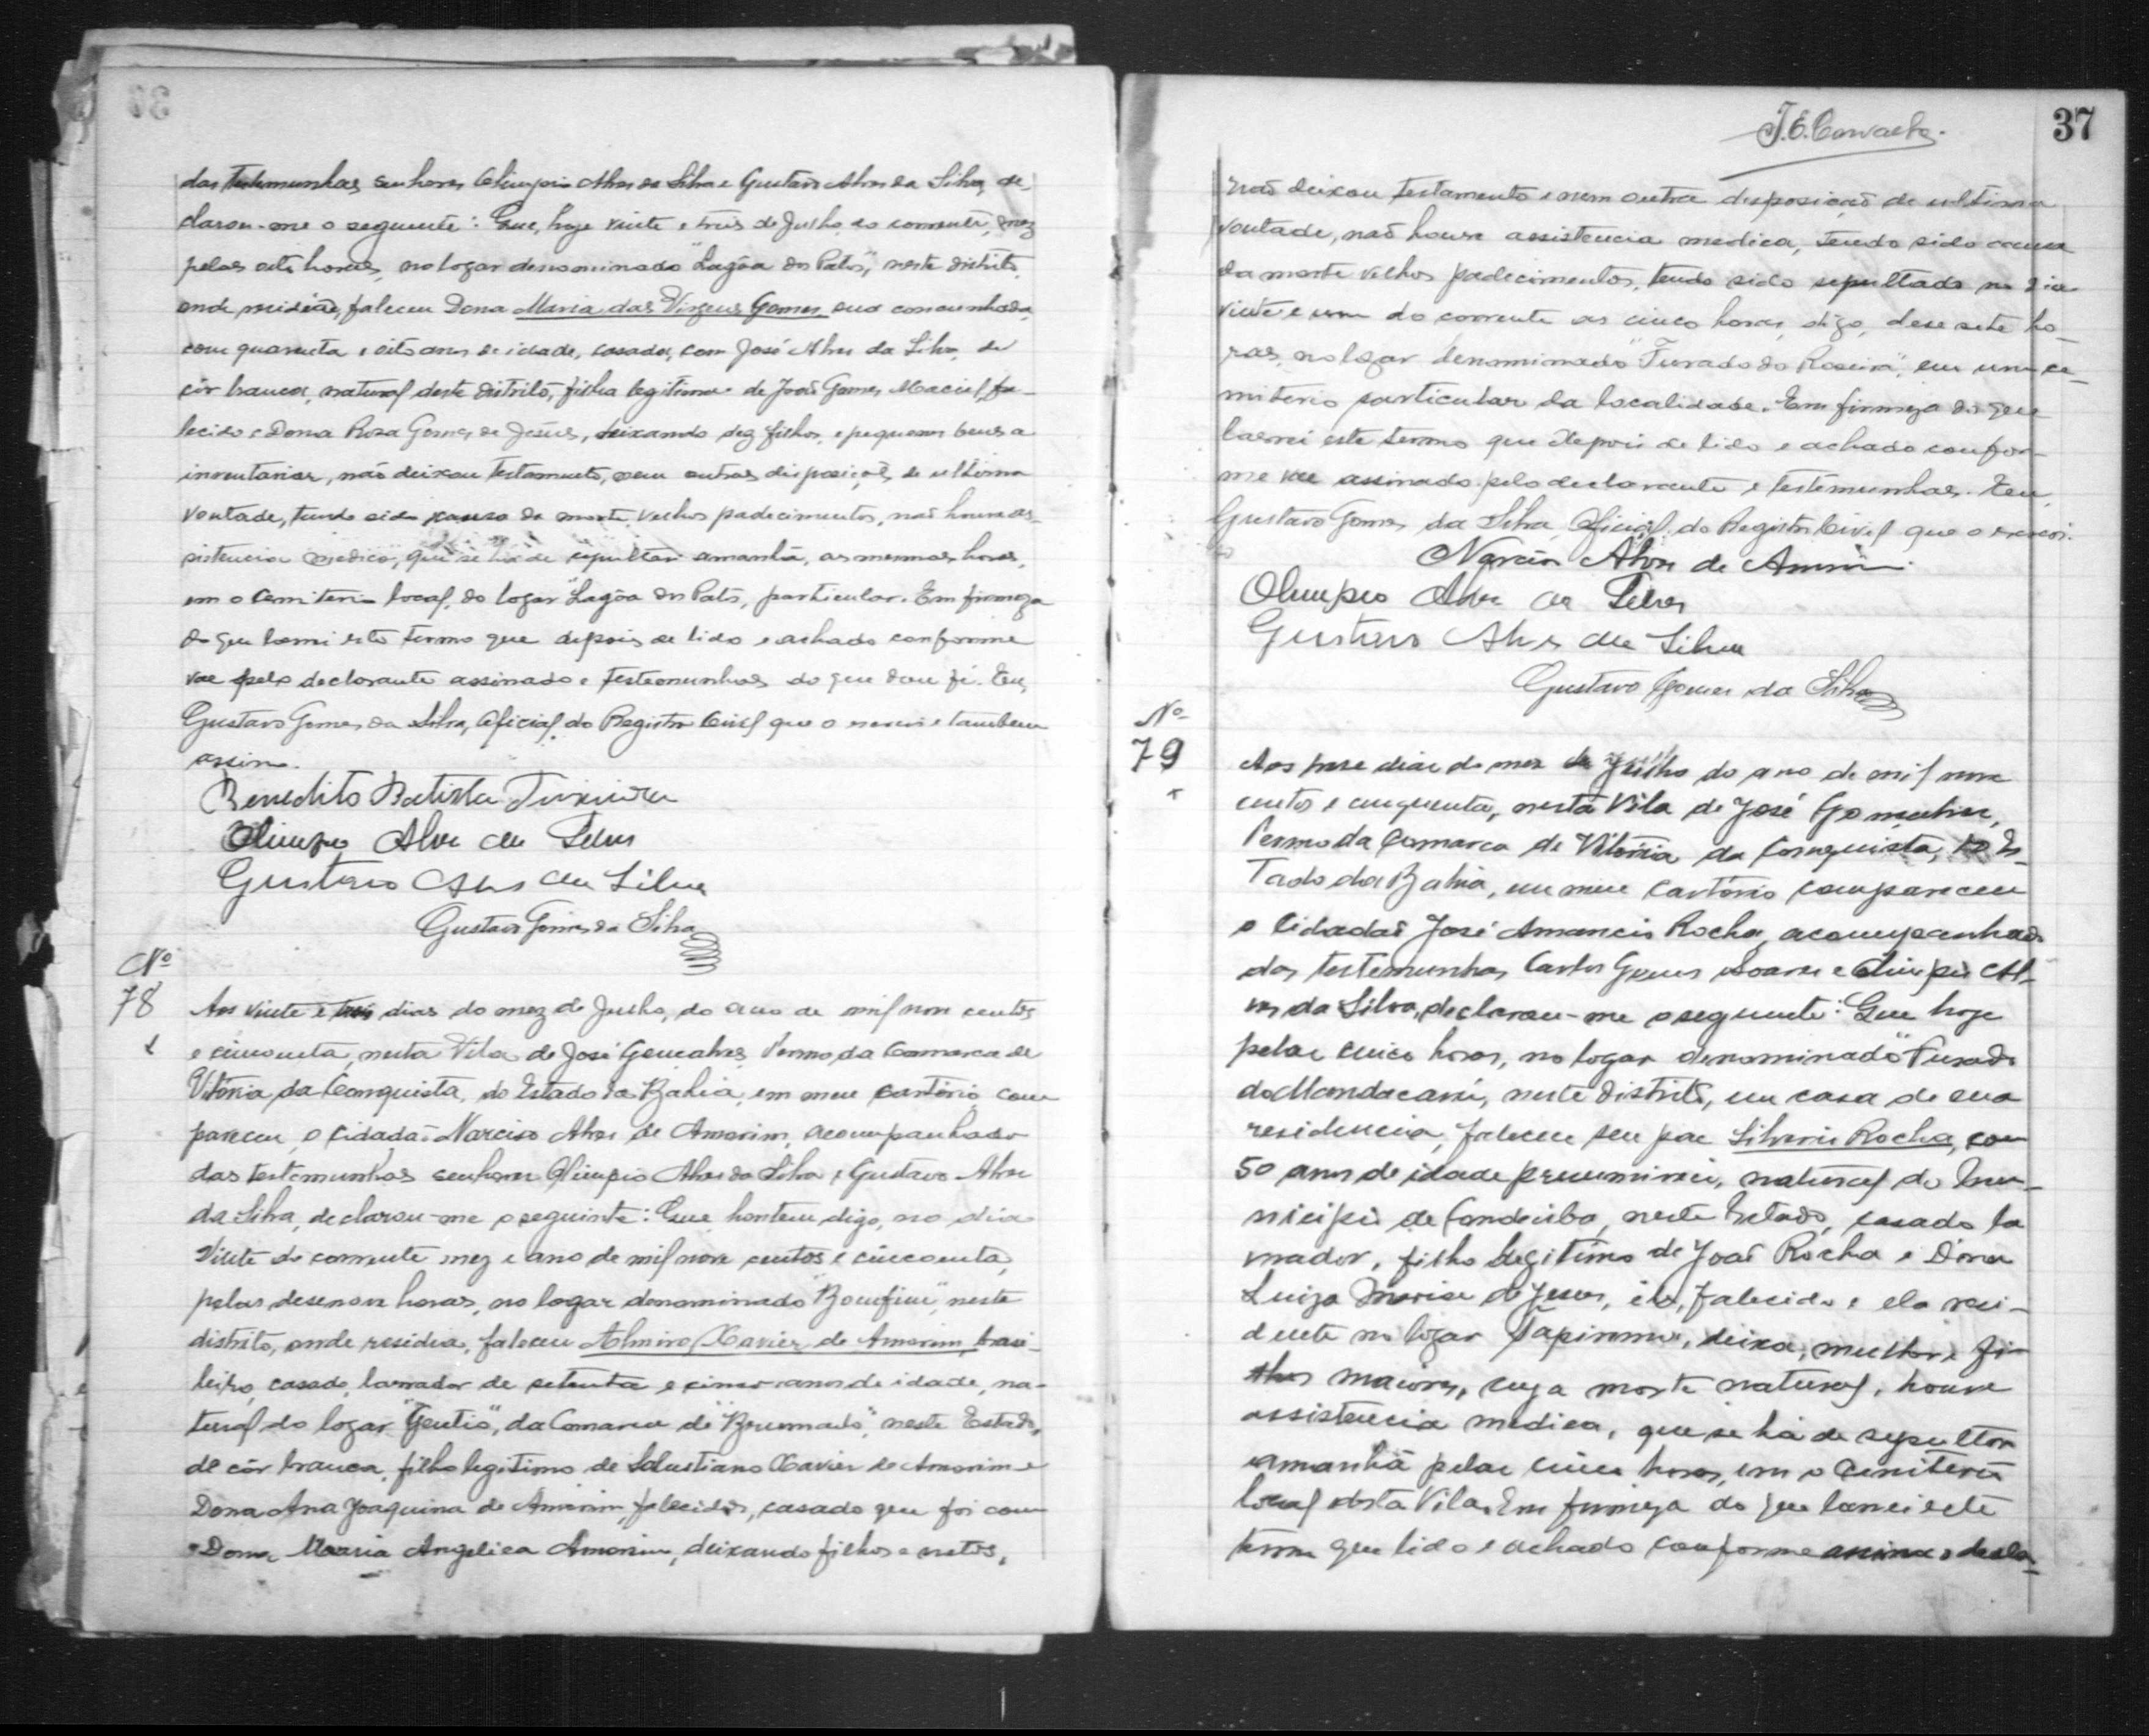 das testemunhas senhores Olimpio Alves da Silva e Gustavo Alves da Silva, de-
clarou-me o seguinte: Que, hoje vinte e três de Julho, do corrente, mez
pelas oito horas, no logar denominado "Lagôa dos Patos", neste distrito,
onde residia, faleceu Dona Maria das Virgens Gomes, sua concunhada,
com quarenta e oito anos de idade, casada, com José Alves da Silva, de
côr branca, natural deste distrito, filha legitima de João Gomes Maciel, fa-
lecido e Dona Rosa Gomes de Jesus, deixando dez filhos, e pequenos bens a
inventariar, não deixou testamento, nem outras disposições de ultima
vontade, tendo sido causa da morte velhos padecimentos, não houve as-
sistencia medica, que se há de sepultar amanhã, as mesmas horas,
em o Cemiterio local, do logar "Lagôa dos Patos, particular. Em firmeza
do que lavrei este termo que depois de lido e achado conforme
vae pelo declarante assinado e testemunhas do que dou fé. Eu,
Gustavo Gomes da Silva, Oficial do Registro Civil que o escrevi e tambem
assino.
Benedito Batista Teixeira
Olimpio Alves da Silva
Gustavo Alves da Silva
Gustavo Gomes da Silva
Nº
78
Aos vinte e três dias do mez de Julho, do ano de mil nove centos
e cincoenta, nesta Vila de José Gonçalves, Termo da Comarca de
Vitória da Conquista, do Estado da Bahia, em meu cartório com
pareceu o cidadão Narciso Alves de Amorim, acompanhado
das testemunhas senhores Olimpio Alves da Silva e Gustavo Alves
da Silva, declarou-me o seguinte: Que hontem digo, no dia
Vinte do corrente mez e ano de mil nove centos e cincoenta,
pelas desenove horas, no logar denominado "Bomfim", neste
distrito, onde residia, faleceu Almiro Xavier de Amorim, brasi-
leiro, casado, lavrador de setenta e cinco anos de idade, na-
tural do logar "Gentio", da Comarca de "Brumado", neste Estado,
de côr branca, filho legitimo de Salustiano Xavier de Amorim e
Dona Ana Joaquina de Amorim, falecidos, casado que foi com
Dona Maria Angelica Amorim, deixando filhos e netos,
37
J. E. Carvalho
não deixou testamento e nem outra disposição de ultima
vontade, não houve assistencia medica, tendo sido causa
da morte velhos padecimentos, tendo sido sepultado no dia
vinte e um do corrente as cinco horas, digo, dese sete ho-
ras, no logar denominado "Furado da Roseira", em um ce-
miterio particular da localidade. Em firmeza do que
lavrei este termo que depois de lido e achado confor-
me vae assinado pelo declarante e testemunhas. Eu,
Gustavo Gomes da Silva, Oficial do Registro Civil que o escrevi.
Narciso Alves de Amorim
Olimpio Alves da Silva
Gustavo Alves da Silva
Gustavo Gomes da Silva
Nº
79
Aos dias do mez de Julho do ano de mil nove
centos e cinquenta, nesta Vila de José Gonçalves,
Termo da Comarca de Vitória da Conquista, do Es-
tado da Bahia, em meu Cartório compareceu
o Cidadão José Amancio Rocha, acompanhado
das testemunhas Carlos Gomes Soares e Olimpio Al-
ves da Silva, declarou-me o seguinte: Que hoje
pelas cinco horas, no logar denominado "Furado
do Mandacarú, neste distrito, em casa de sua
residencia, faleceu seu pae Silverio Rocha, com
50 anos de idade presumiveis, natural do Mu-
nicipio de Condeúba, neste Estado, casado la
vrador, filho legitimo de João Rocha e Dona
Luiza Maria de Jesus, ele, falecido e ela resi-
dente no logar deixa, mulher e fi-
lhos maiores, cuja morte natural, houve
assistencia medica, que se há de sepultar
amanhã pelas cinco horas, em o Cemiterio
local desta Vila. Em firmeza do que lavrei este
termo que lido e achado conforme assina o decla-